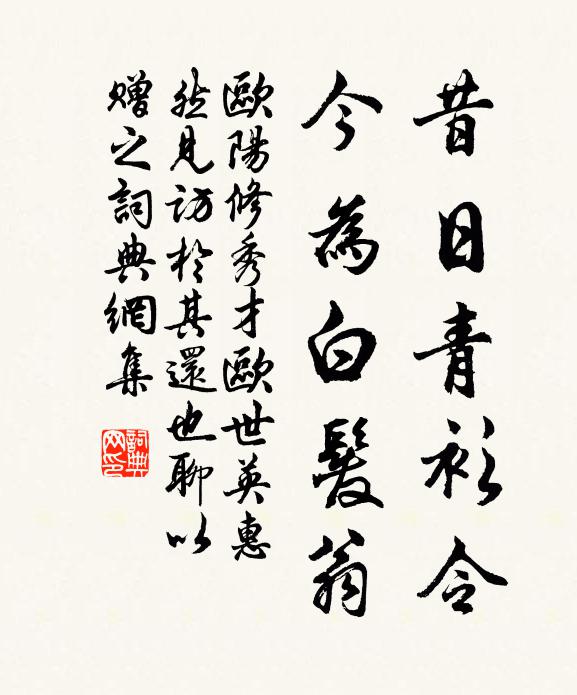 昔日青衫令
今為白髮翁
歐陽修秀才歐世英惠
然見訪於其還也聊以
贈之詞典網集
詞典網印